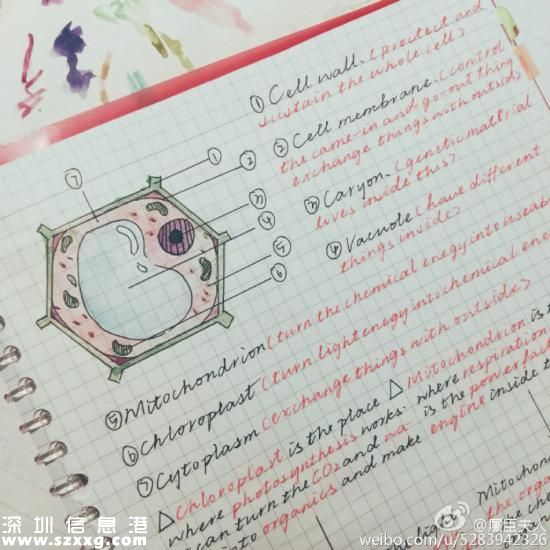 ① Cell wall. (proctect and
sustain the whole cell)
② Cell membrane. (control
the came-in and go-out thing
exchange things with outside)
③ Caryon. (genetic mattrial
lives inside this)
④ Vacuole (have different
things inside)
⑤ Mitochondrion (turn the chemical enegy into useable
⑥ Chloroplast (turn light enegy into chemical ene
⑦ Cytoplasm (exchange things with outside)
△ Chloroplast is the place
where photosynthesis works.
can turn the CO2 and wa-
into organics
△ Mitochondrion is t
where respiration
is the powerful
engine inside t
and make
Mitochond
the orga
the che
⑦
①
②
③
④
⑤
⑥
深圳信息港
www.szxxg.com
@屠臣夫人
weibo.com/u/5283942326